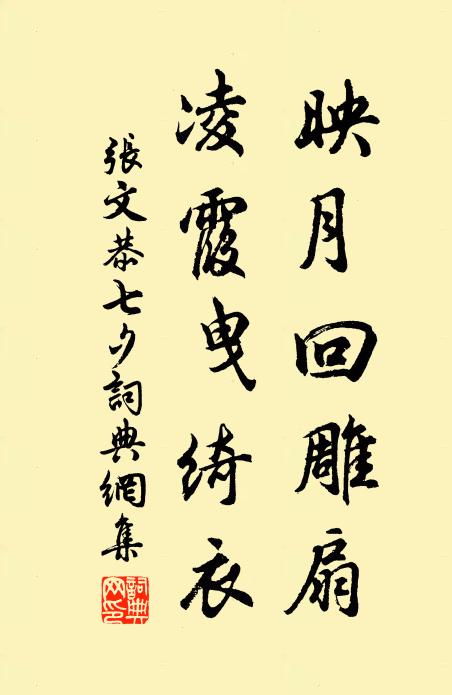 映月回雕扇
凌霞曳綺衣
張文恭七夕詞典網集
詞典網印